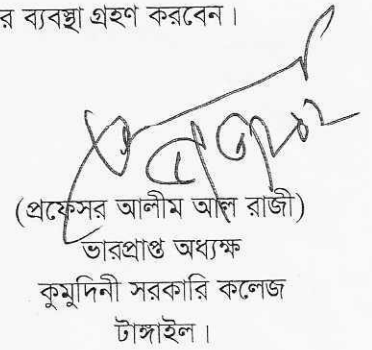 র ব্যবস্থা গ্রহণ করবেন।
(প্রফেসর আলীম আল রাজী)
ভারপ্রাপ্ত অধ্যক্ষ
কুমুদিনী সরকারি কলেজ
টাঙ্গাইল।